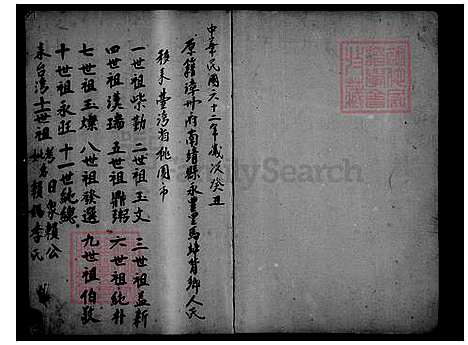 中華民國六十二年歲次癸丑
原籍漳州府南靖縣永豐里馬埤背鄉人氏
移來臺灣省桃園市
一世祖柴勤 二世祖玉文 三世祖孟新
四世祖漢瑞 五世祖鼎 六世祖純朴
七世祖玉燦 八世祖發選 九世祖伯敬
十世祖永旺 十一世純總
來台灣十二世祖 日象賴公
賴媽李氏
FamilySearch